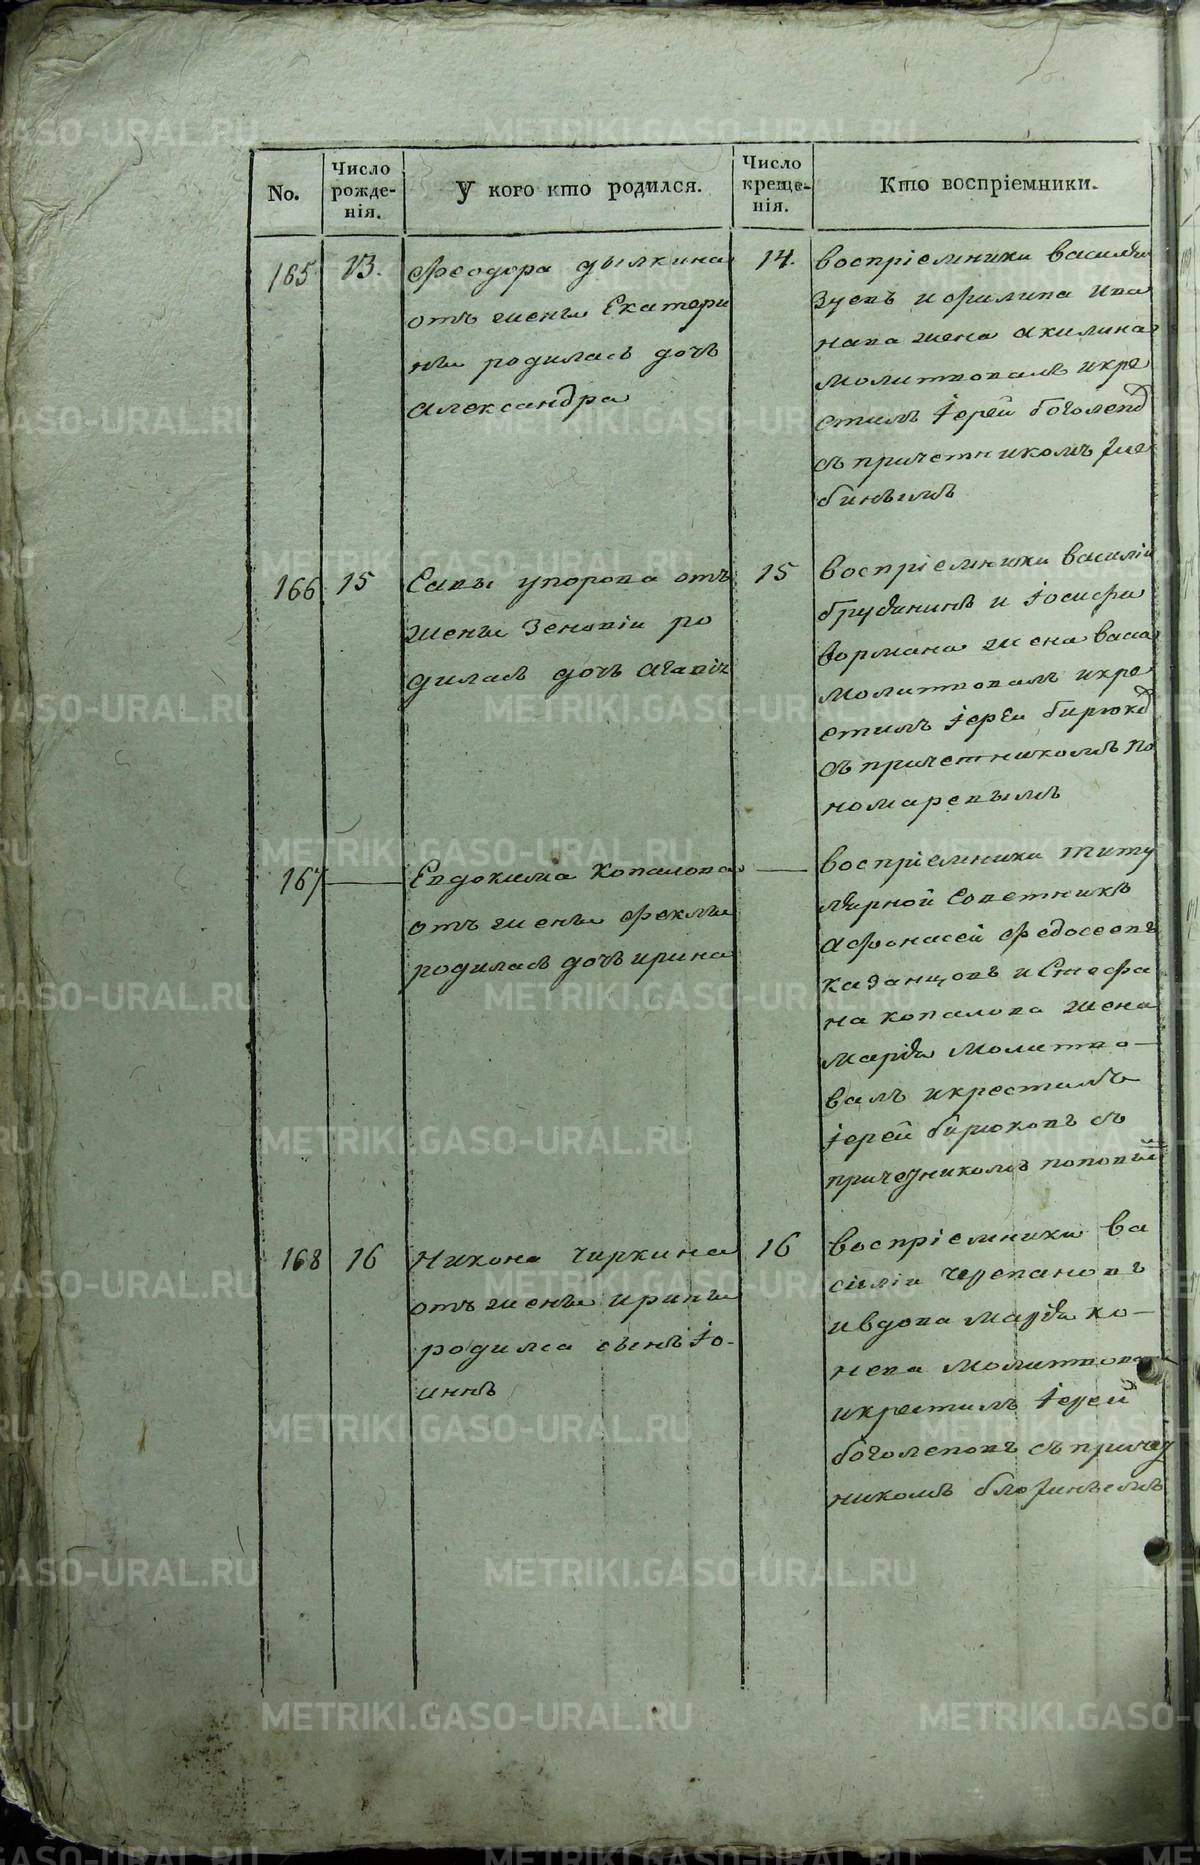 No.
Число рожде-нія.
У кого кто родился.
Число креще-нія.
Кто воспріемники.
165
13.
Феодора дылкина
отъ жены Екатери
ны родилась дочь
александра
14.
воспріемники василій
Зуевъ и филипа ива
нова жена акилина
молитвовалъ икре
стилъ іерей боголеповъ
съ причетникомъ
бинымъ
166
15
Савы упорова отъ
жены Зеновіи ро
дилась дочь агапія
15
воспріемники василіи
брусянинъ и іосифа
формана жена васса
молитвовалъ икре
стилъ іерей бирюковъ
съ причетникомъ по
номаревымъ
167
Евдокима Копалова
отъ жены феклы
родилась дочь ирина
воспріемники титу
лярной советникъ
афонасей федосеевъ
казанцовъ и Стефа
на копалова жена
марія молитво-
валъ икрестилъ
іерей бирюковъ съ
причетникомъ поповым
168
16
Никона чиркина
отъ жены ирины
родился сынъ іо-
аннъ
16
воспріемники ва
силіи черепановъ
ивдова марія ко-
нева молитвова
икрестилъ іерей
боголеповъ съ причет
никомъ
METRIKI.GASO-URAL.RU